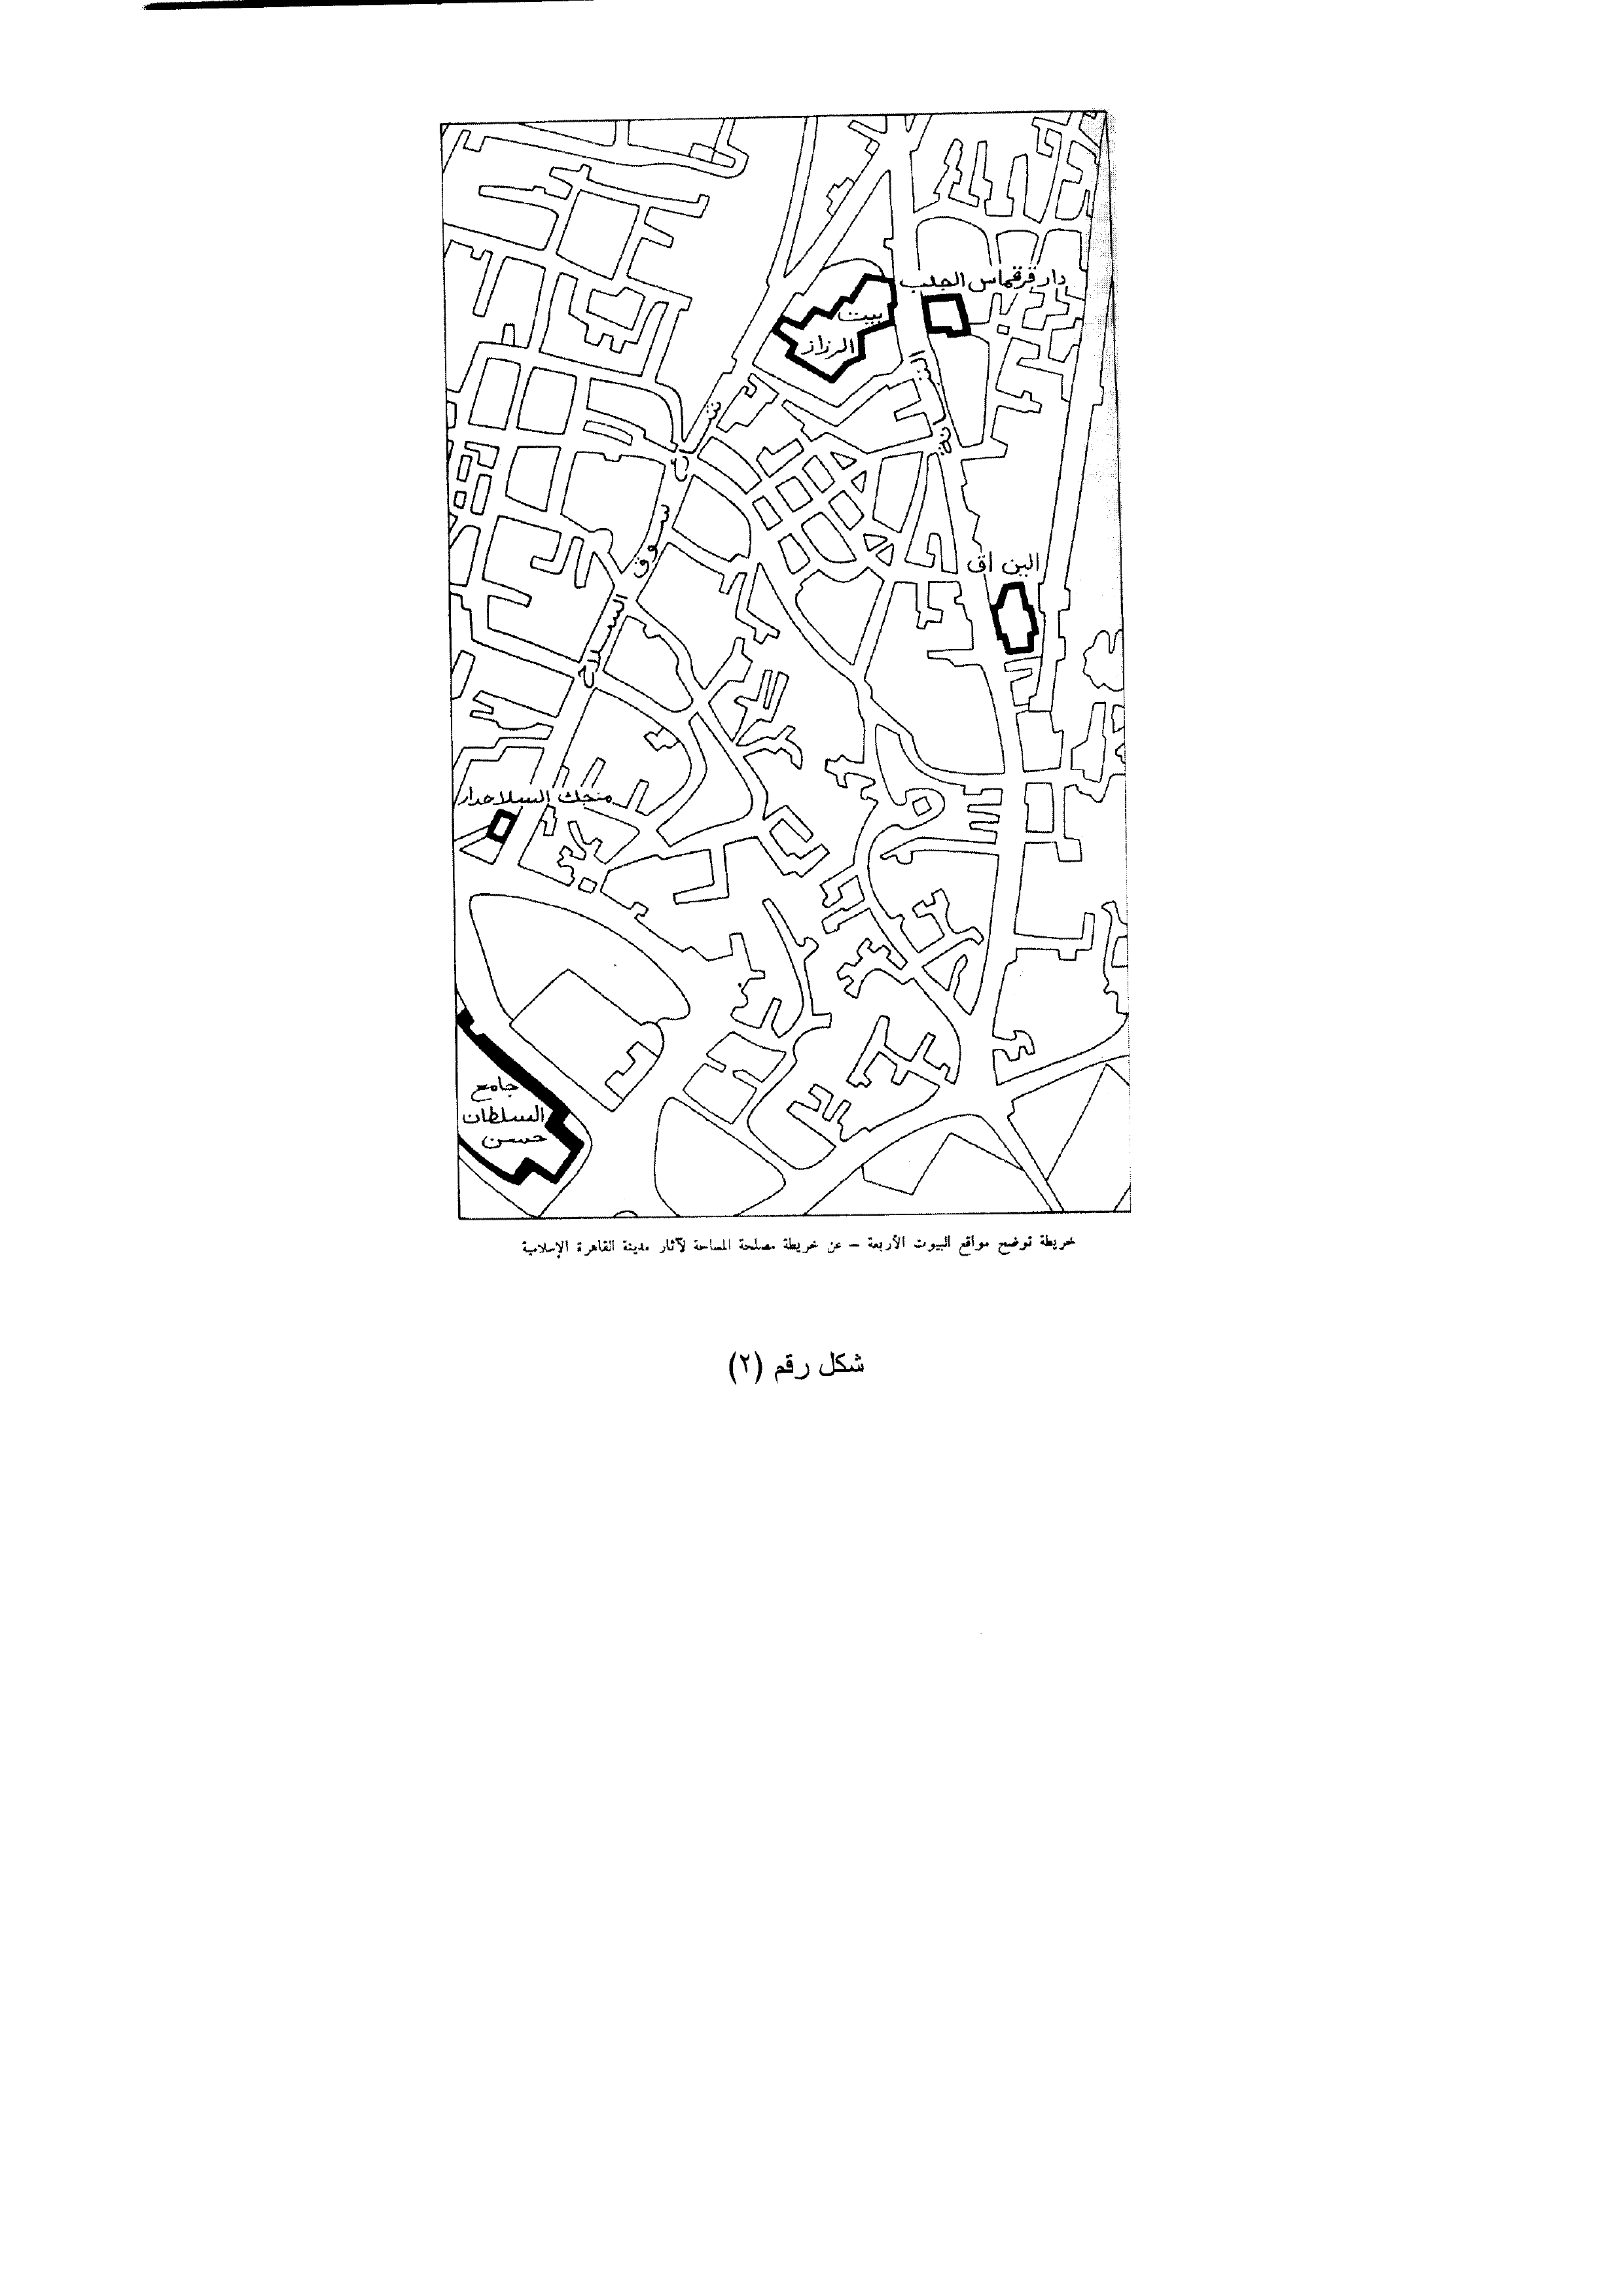 دار قرقماس الجلب
بيت
الرزاز
التبانة
شارع
سوق
السلاح
الين اق
منجك السلاحدار
جامع
السلطان
حسن
خريطة توضح مواقع البيوت الأربعة – عن خريطة مصلحة المساحة لآثار مدينة القاهرة الإسلامية
شكل رقم (٢)